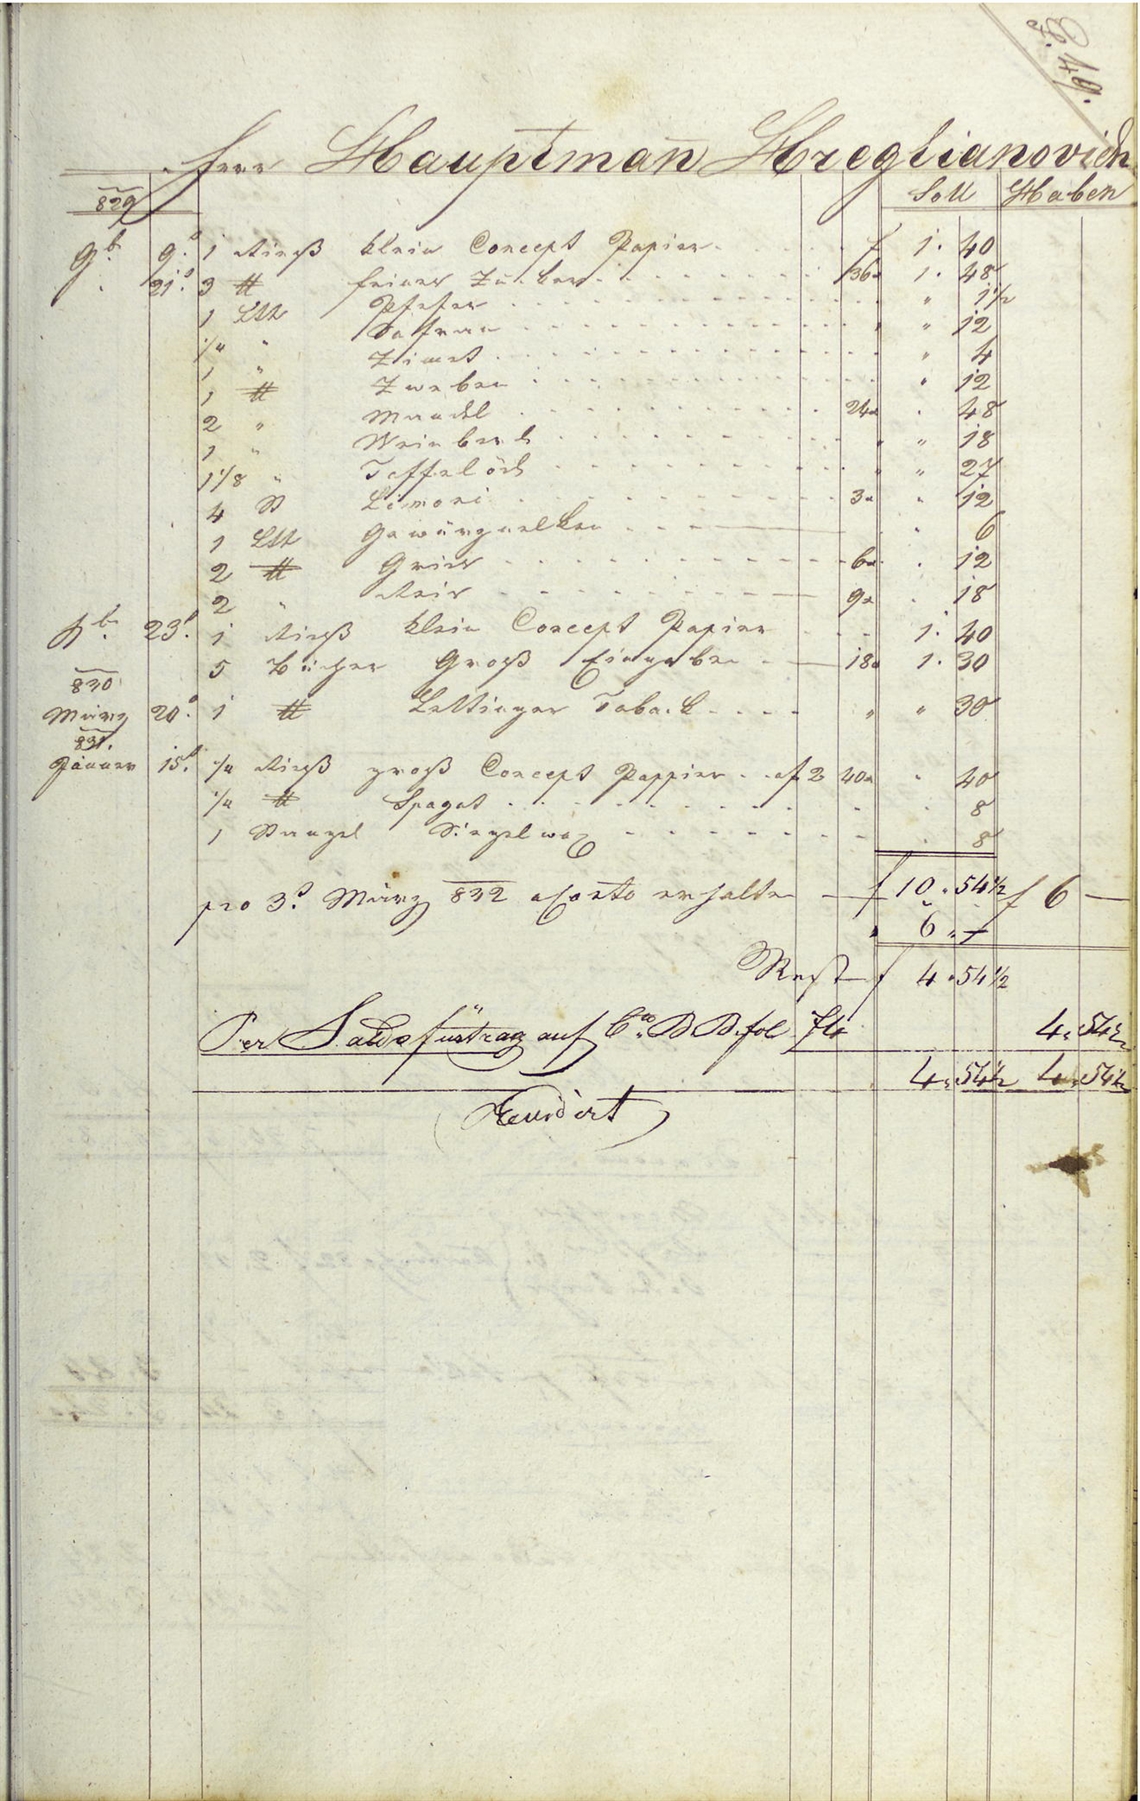 F. 49.
Herr Hauptman̄ Hreglianovich
829 Soll Haben
9b. 9. 1 Rieß klein Concept Papier f 1. 40
21. 3 ℔ feiner Zucker 36x 1. 48
1 Lth Pfefer " 1½
¼ " Safran " 12
1 " Zimet " 4
1 ℔ Zweben " 12
2 " Mandel 24x . 48
1 " Weinberl " " 18
1 1/8 " Taffelöhl " " 27
4 St Limoni 3x " 12
1 Lth Gewürznelken . 6
2 ℔ Gries 6x . 12
2 " Reis 9x . 18
Xb. 23. 1 Rieß klein Concept Papier 1. 40
5 Bücher Groß Eingaben 18x 1. 30
830
März 20. 1 ℔ Lettinger Taback " " 30
831.
Jänner 15. ¼ Rieß groß Concept Pappier af 2 40x . 40
¼ ℔ Spagat . 8
1 Stangel Siegelwax . 8
f 10. 54½ f 6 —
pro 3. März 832 a Conto erhalten
" 6 " —
Rest f 4. 54½
Per Saldo fürtrag auf B. fol 74 4. 54½
4. 54½ 4. 54½